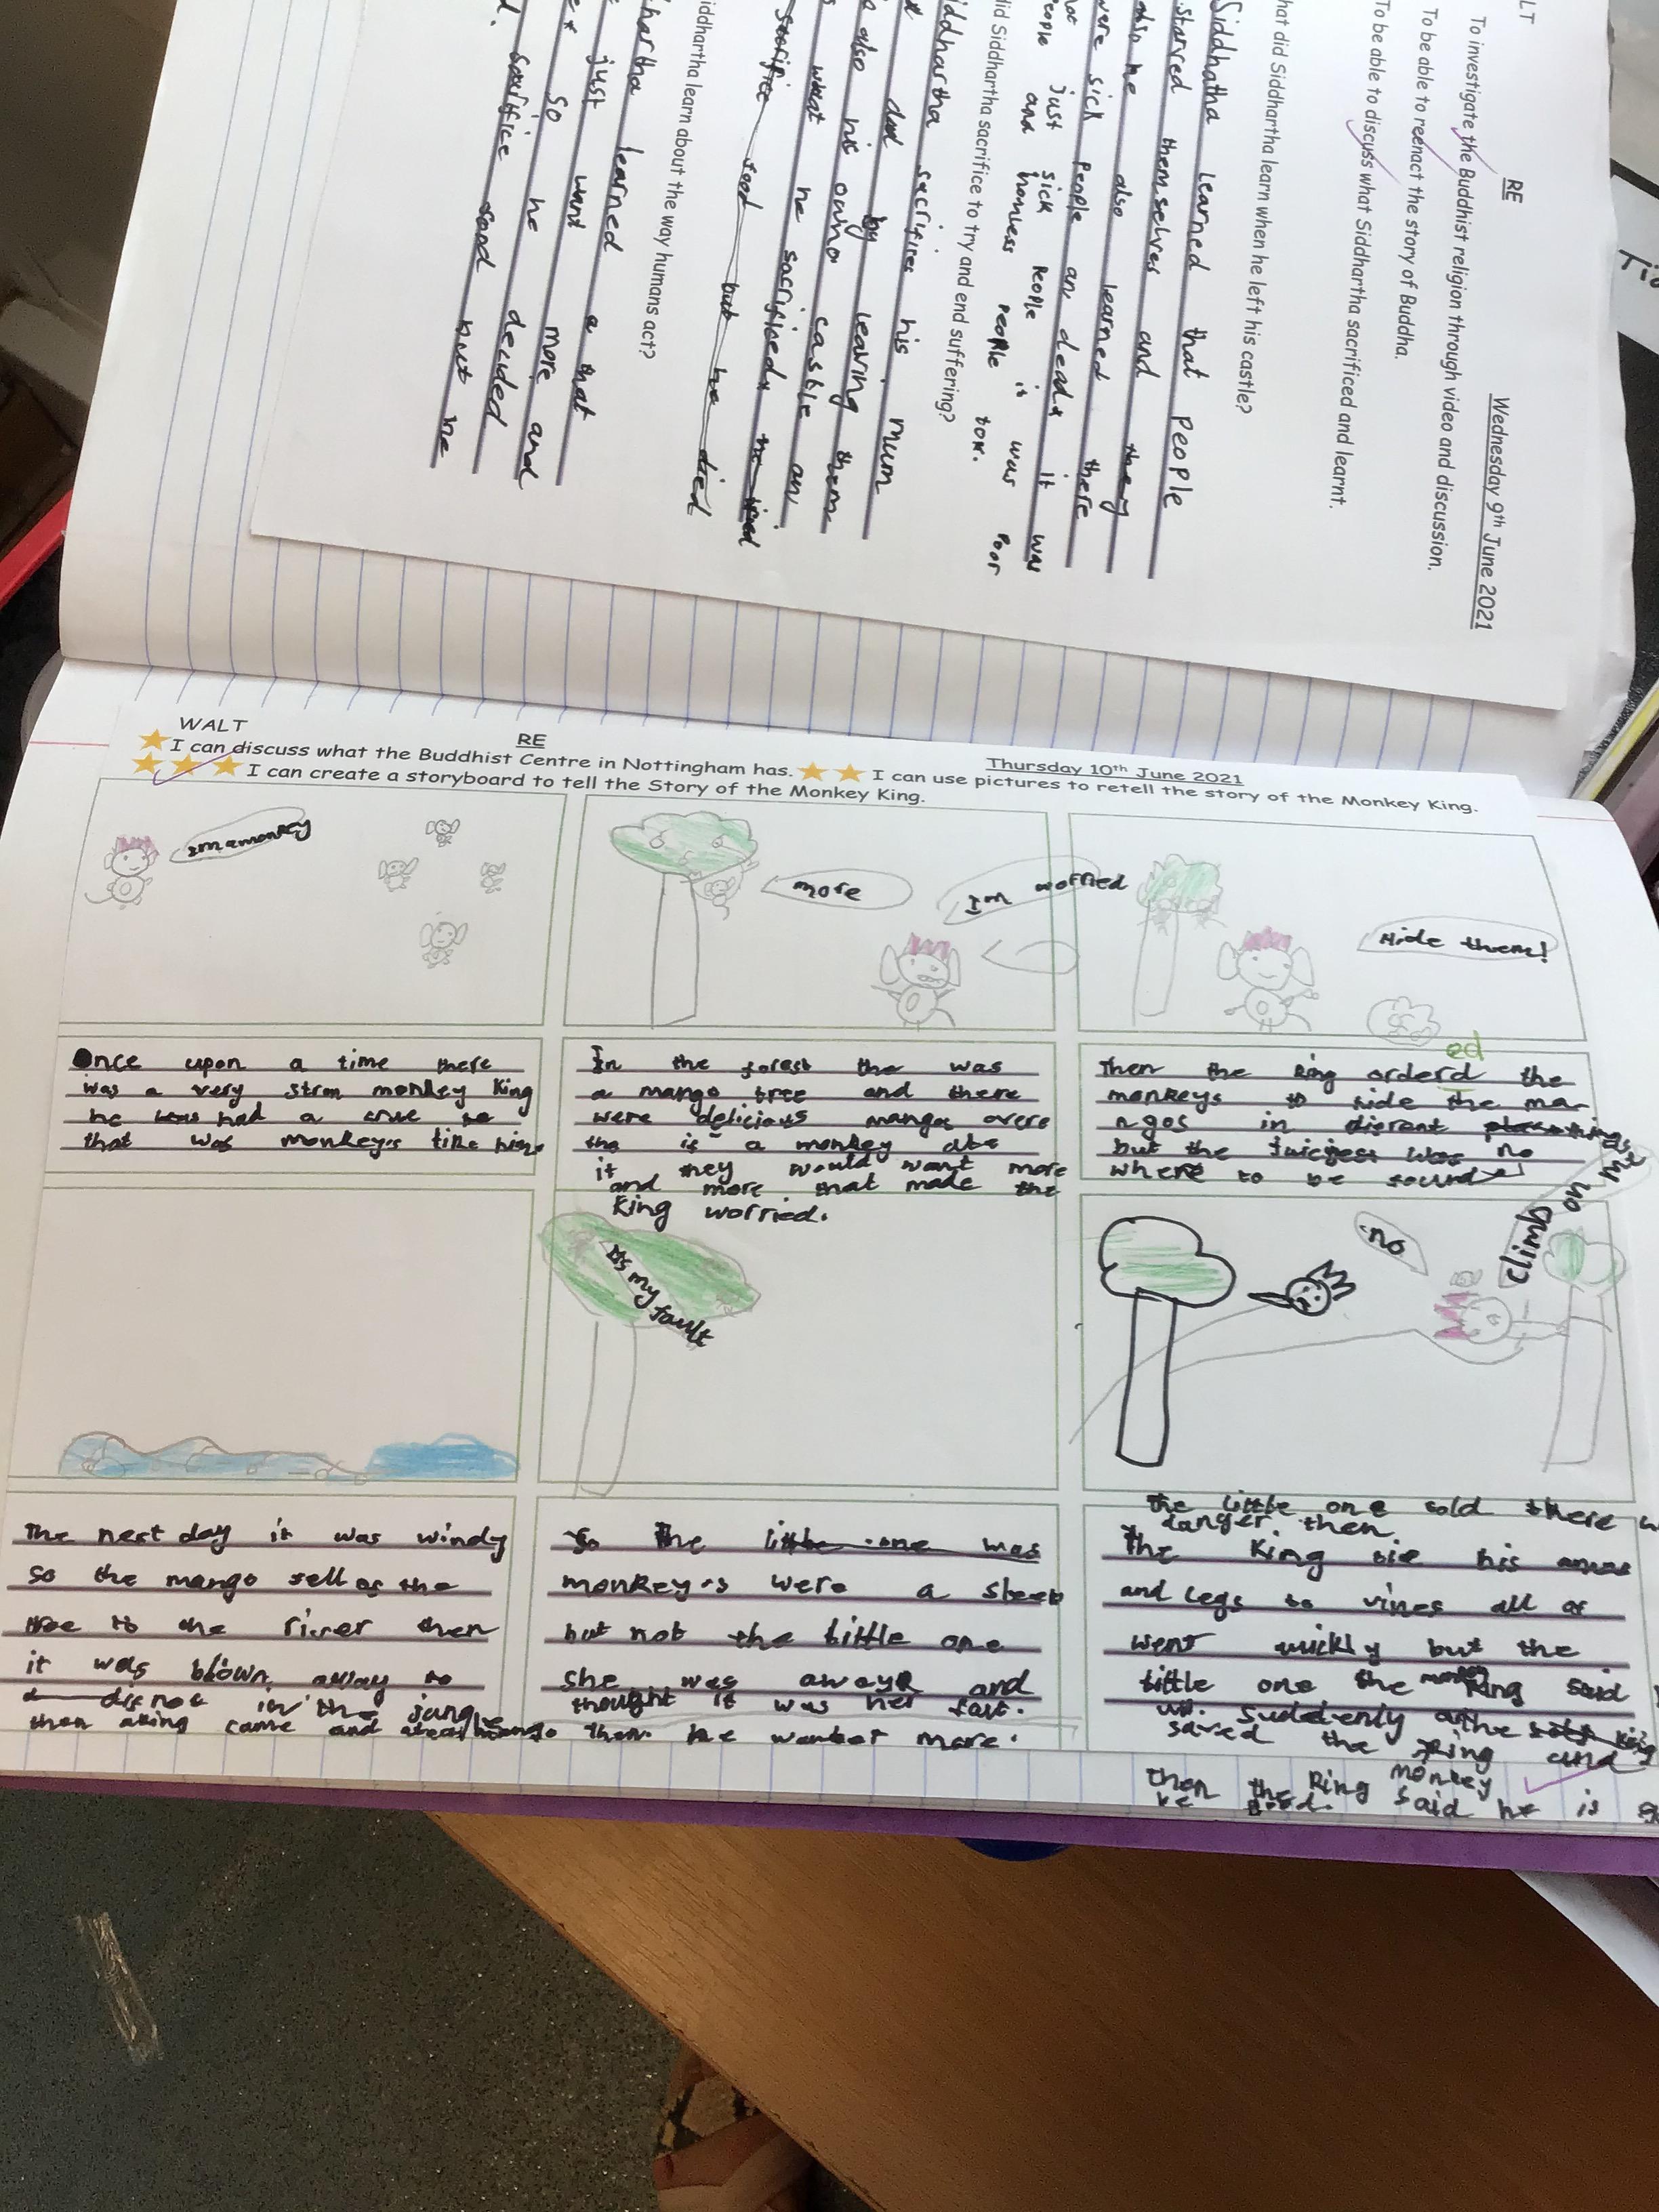 LT
RE
Wednesday 9th June 2021
To investigate the Buddhist religion through video and discussion.
To be able to reenact the story of Buddha.
To be able to discuss what Siddhartha sacrificed and learnt.
hat did Siddhartha learn when he left his castle?
Siddhatha learned that People
starved themselves and they
also he also learned there
were sick People an dead it was
not just sick People it was Poor
People and homless People tow.
did Siddhartha sacrifice to try and end suffering?
iddhartha sacrifices his mum
dad by leaving them
also his owno castle an
what he sacrificed
scarifice food but he died
iddhartha learn about the way humans act?
hartha learned a that
just want more and
so he decided
sacrifice food but he
d.
WALT
RE
Thursday 10th June 2021
I can discuss what the Buddhist Centre in Nottingham has. I can use pictures to retell the story of the Monkey King.
I can create a storyboard to tell the Story of the Monkey King.
Im a monkey
more
I'm worried
Hide them!
Once upon a time there
was a very stron monkey King
he had a
that was monkeys like him
In the forest the was
a mango tree and there
were delicious mango
is a monkey ate
it they would want more
and more that made the
King worried.
Then the King orderd the
ed
monkeys to hide the ma-
ngos in things
but the was no
where to be found
its my fault
no
cling on me
The nest day it was windy
so the mango fell of the
tree to the river then
it was blown away to
in the jungle
then aking came and mango
So the little one was
monkey's were a sleeb
but not the little one
she was and
thought it was her falt.
Then he wanbet more.
the little one told there
danger. then
the King tie his
and legs to vines all of
went quickly but the
little one the monkey King said
Suddenly the King
saved the King and
then the King monkey said he is
be good.